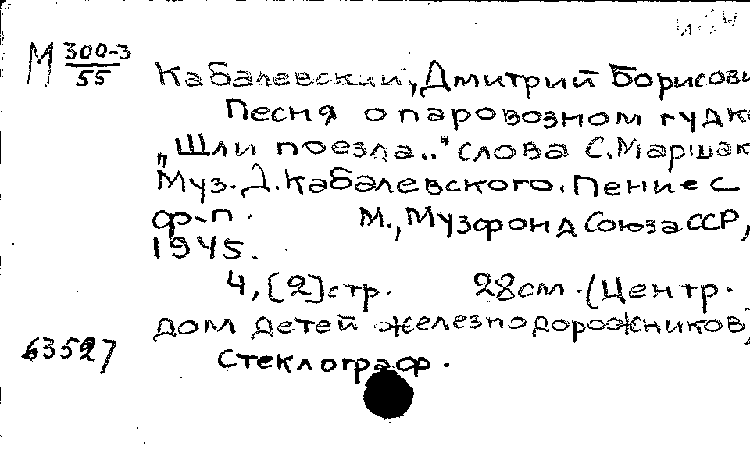 М 300-3
55
Кабалевский, Дмитрий Борисови
Песня о паровозном гудке
„Шли поезда.." слова С. Маршак
Муз. Д. Кабалевского. Пение с
ф-п. М., Музфонд Союза ССР,
1945.
4, [2] стр. 28 см. (Центр.
дом детей железнодорожников)
63527
Стеклограф.